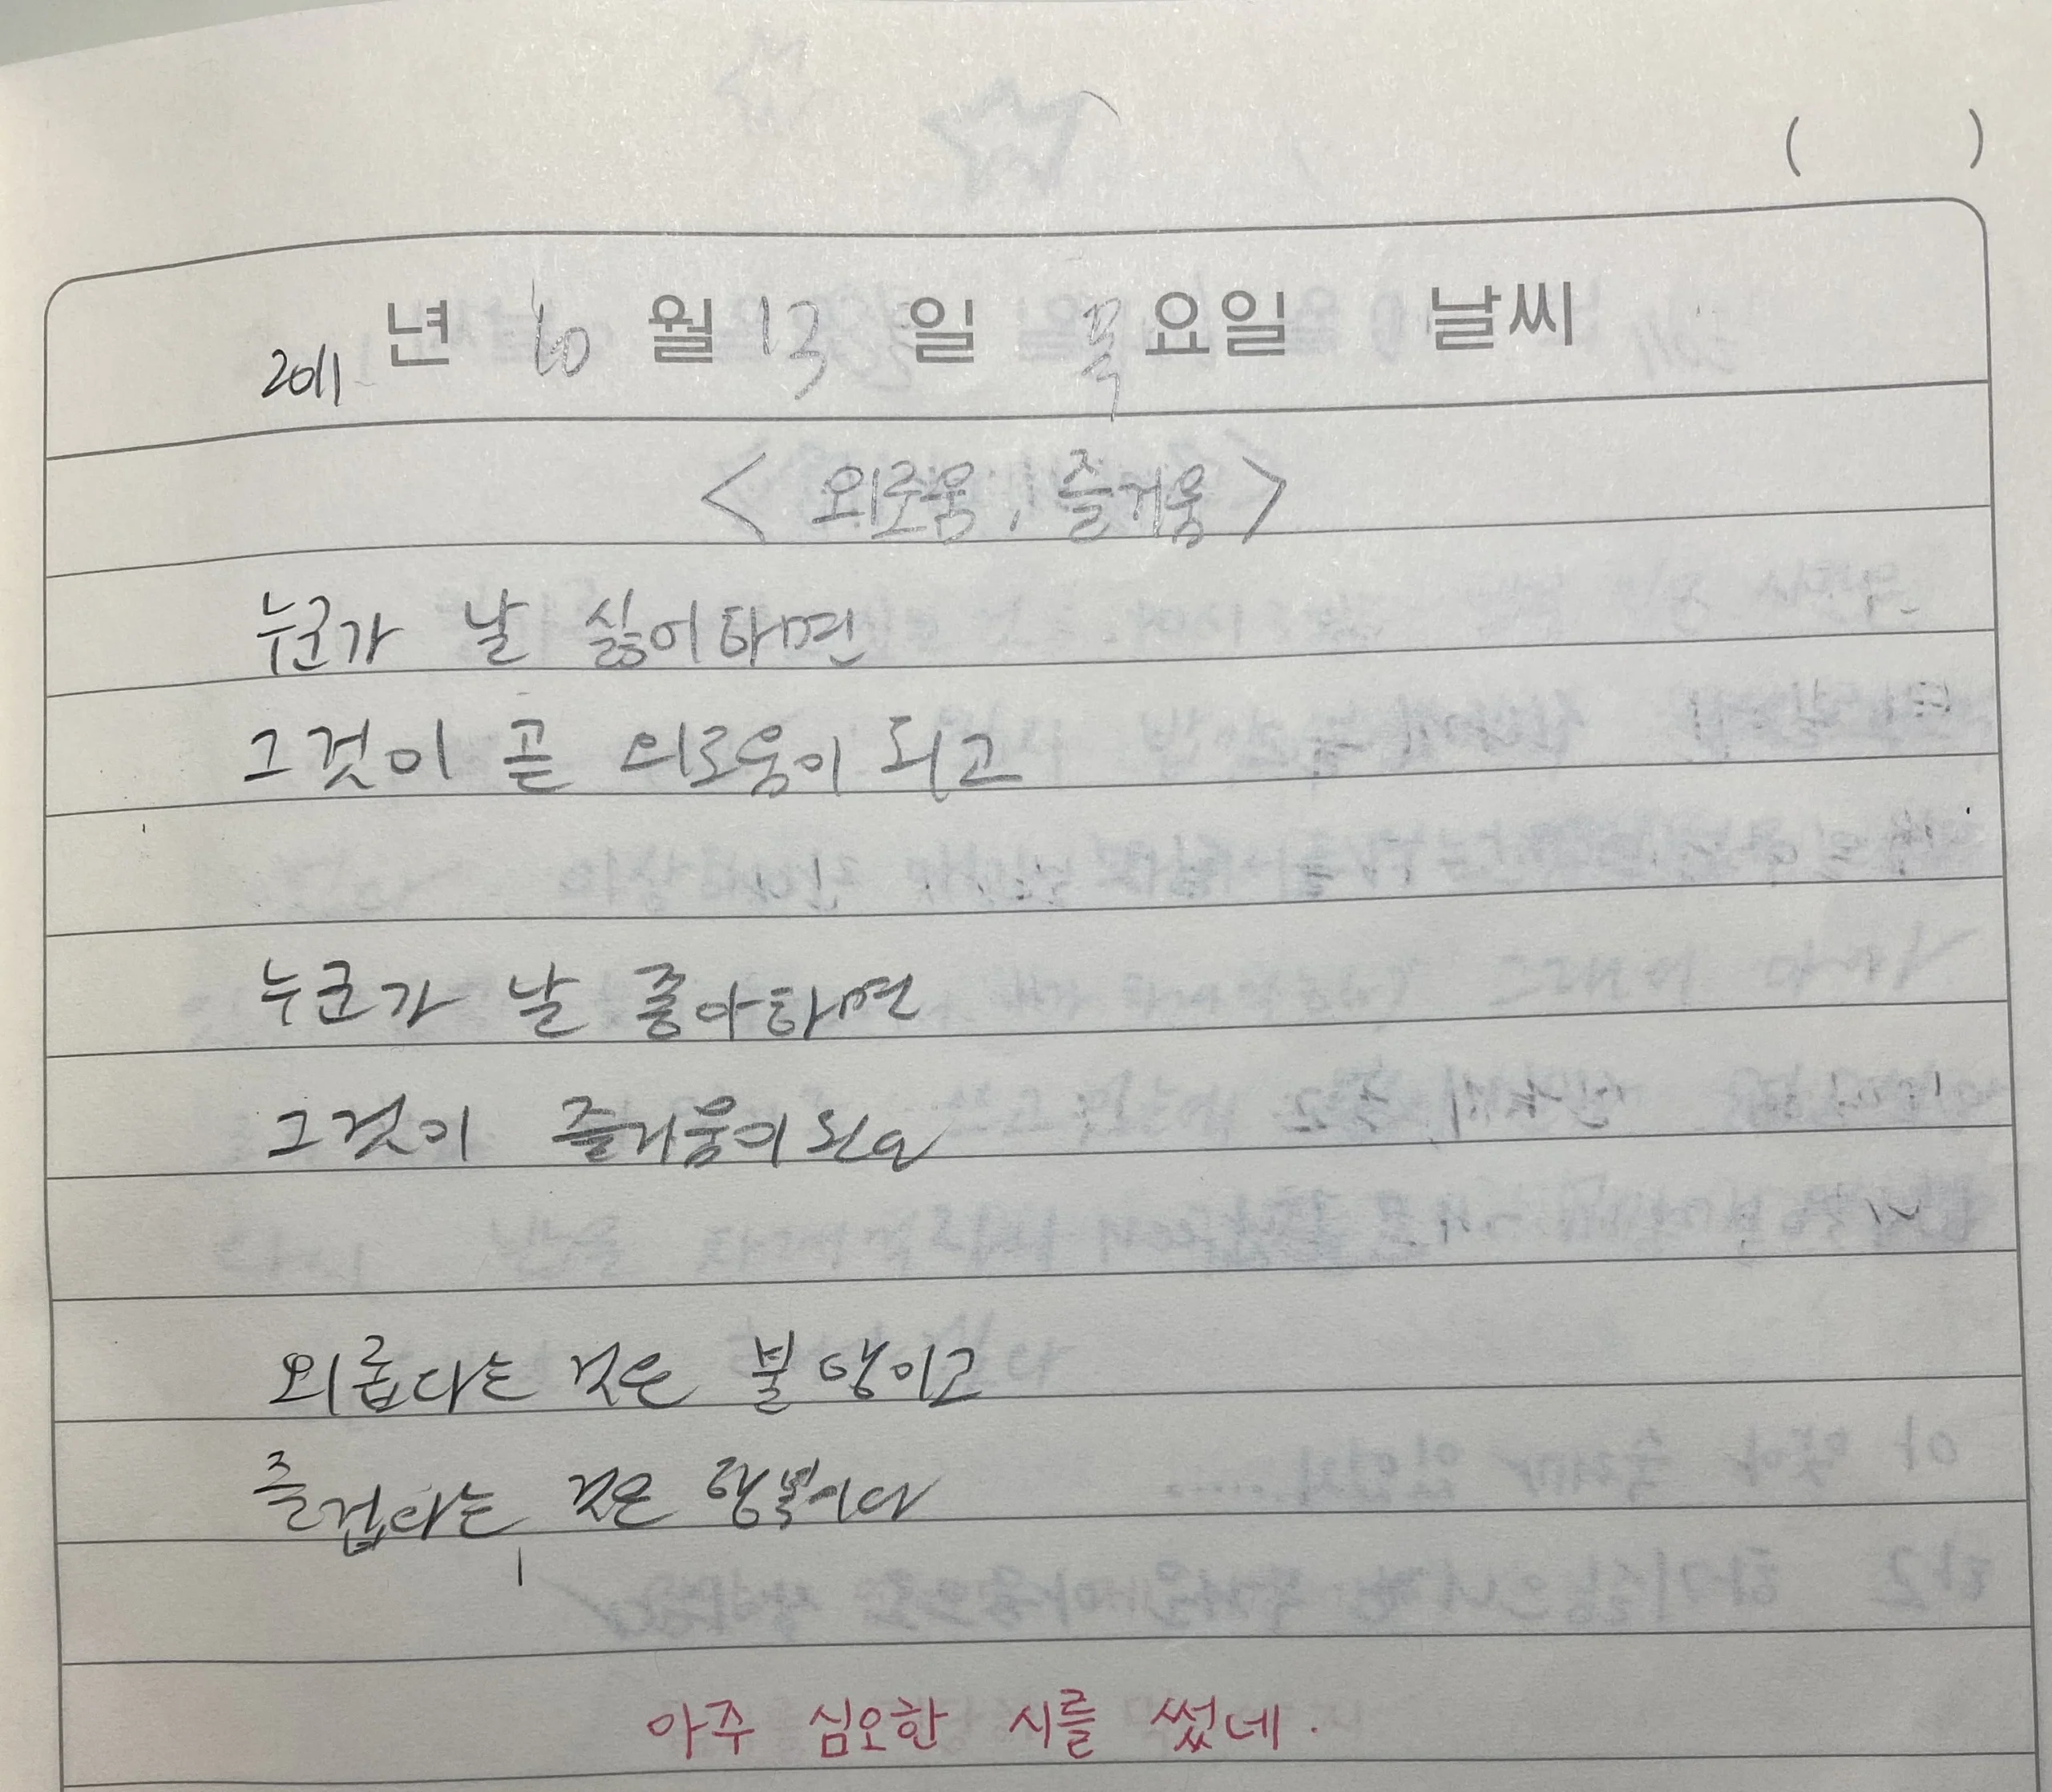 ( )
2011 년 10 월 13 일 목요일 날씨
< 외로움, 즐거움 >
누군가 날 싫어하면
그것이 곧 외로움이 되고
누군가 날 좋아하면
그것이 즐거움이 되다
외롭다는 것은 불행이고
즐겁다는 것은 행복이다
아주 심오한 시를 썼네.